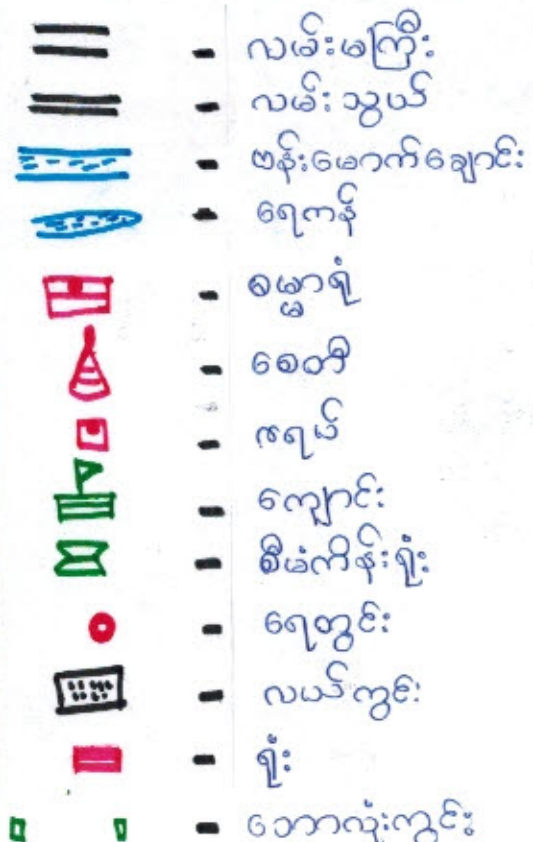 - လမ်းမကြီး
- လမ်းသွယ်
- ဗန်းမောက်ချောင်း
- ရေကန်
- ဓမ္မာရုံ
- စေတီ
- ဇရပ်
- ကျောင်း
- စီမံကိန်းရုံး
- ရေတွင်း
- လယ်ကွင်း
- ရုံး
- ဘောလုံးကွင်း